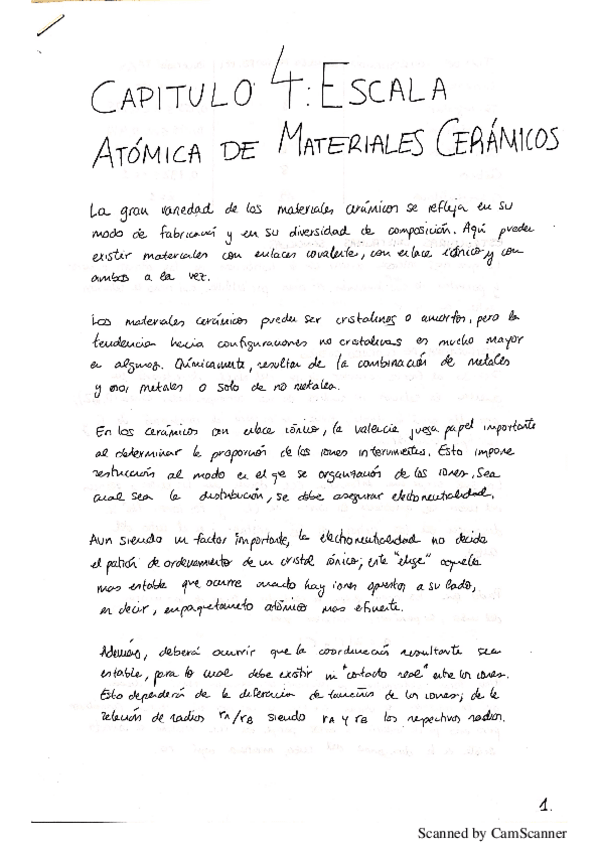 CAPITULO 4: ESCALA
ATÓMICA DE MATERIALES CERÁMICOS
La gran variedad de los materiales cerámicos se refleja en su
modo de fabricación y en su diversidad de composición. Aquí pueden
existir materiales con enlaces covalente, con enlace iónico y con
ambos a la vez.
Los materiales cerámicos pueden ser cristalinos o amorfos, pero la
tendencia hacia configuraciones no cristalinas es mucho mayor
en algunos. Químicamente, resultan de la combinación de metales
y no metales o solo de no metales.
En los cerámicos con enlace iónico, la valencia juega papel importante
al determinar la proporción de los iones intervinientes. Esto impone
restricción al modo en el qe se organización de los iones. Sea
cual sea la distribución, se debe asegurar electroneutralidad.
Aun siendo un factor importante, la electroneutralidad no decide
el patrón de ordenamiento de un cristal iónico; este "elige" aquella
mas estable que ocurre cuando hay iones opuestos a su lado,
es decir, empaquetamiento atómico mas eficiente.
Además, deberá ocurrir que la coordinación resultante sea
estable, para lo cual debe existir un "contacto real" entre los iones.
Esto dependerá de la diferencia de tamaños de los iones; de la
relación de radios rA/rB siendo rA y rB los respectivos radios.
1.
Scanned by CamScanner